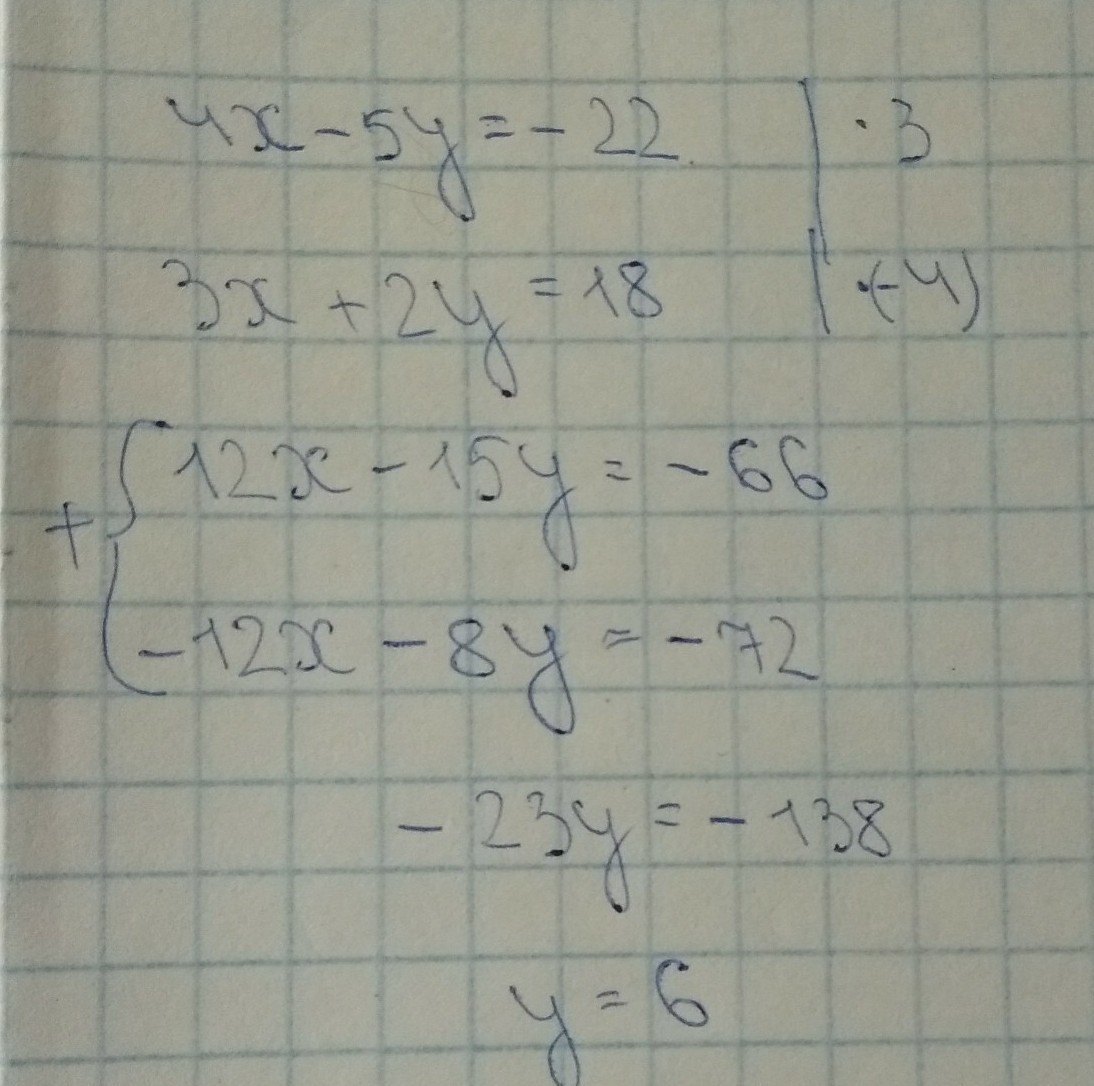 4x - 5y = - 22 | · 3
3x + 2y = 18 | ·(-4)
+ { 12x - 15y = - 66
- 12x - 8y = - 72
- 23y = - 138
y = 6